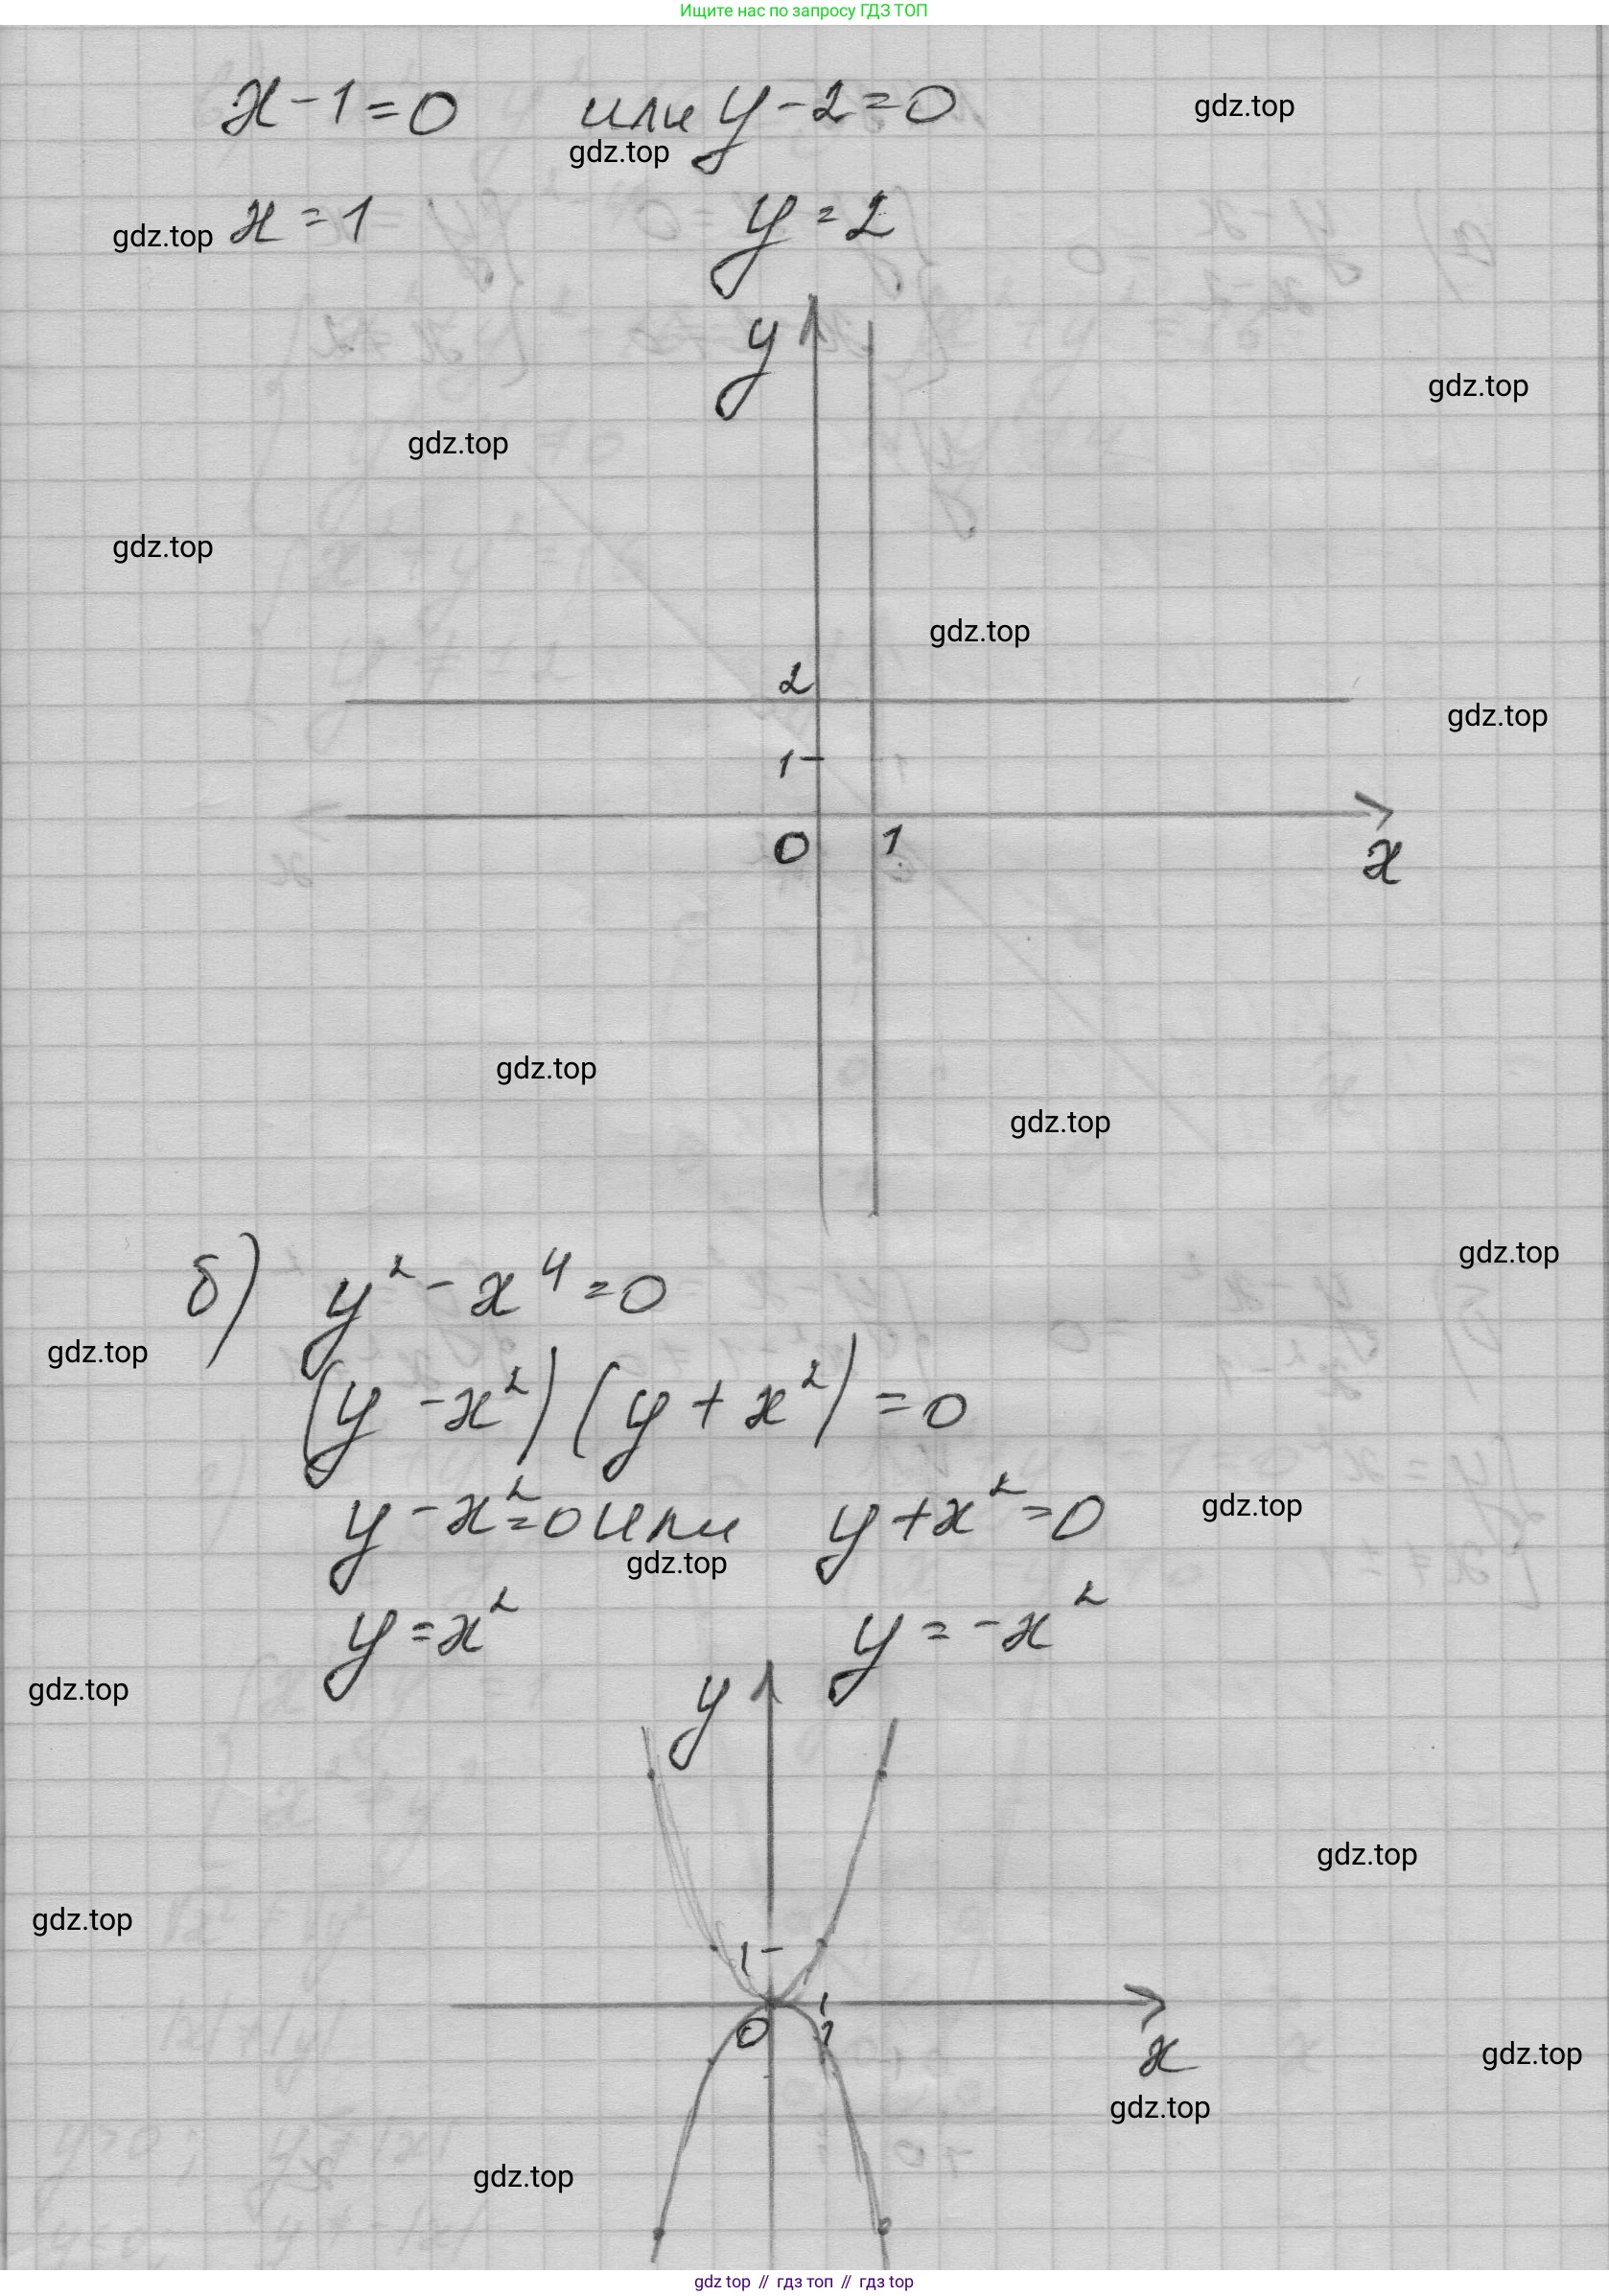 Ищите нас по запросу ГДЗ ТОП
x - 1 = 0 или y - 2 = 0
gdz.top
gdz.top
x = 1 y = 2
gdz.top
y
gdz.top
gdz.top
gdz.top
gdz.top
2
gdz.top
1
0 1 x
gdz.top
gdz.top
б) y² - x⁴ = 0
gdz.top
gdz.top
(y - x²)(y + x²) = 0
y - x² = 0 или y + x² = 0
gdz.top
gdz.top
y = x² y = -x²
gdz.top
y
gdz.top
gdz.top
1
0 1 x
gdz.top
gdz.top
gdz.top
gdz top // гдз топ // гдз top